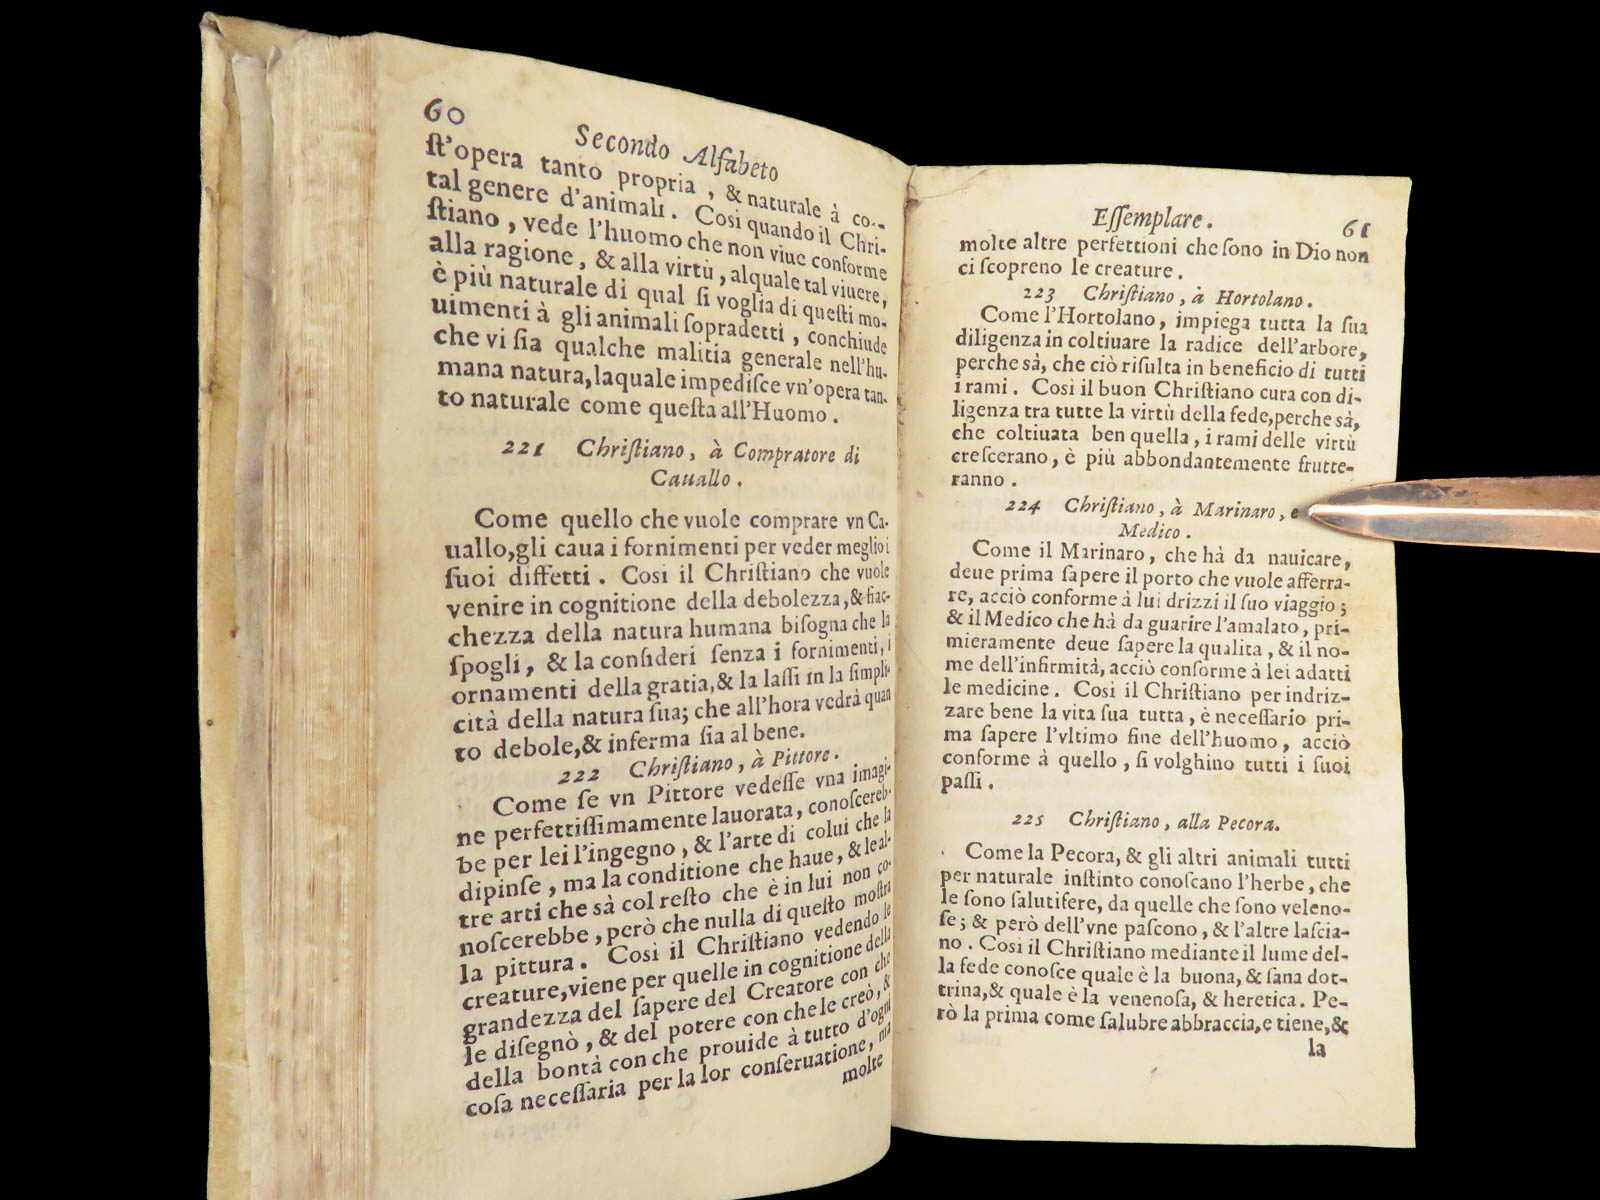 60
Secondo Alfabeto
ſt'opera tanto propria, & naturale à co-
tal genere d'animali. Così quando il Chri-
ſtiano, vede l'huomo che non viue conforme
alla ragione, & alla virtù, alquale tal viuere,
è più naturale di qual ſi voglia di queſti mo-
uimenti à gli animali ſopradetti, conchiude
che vi ſia qualche malitia generale nell'hu-
mana natura, laquale impediſce vn'opera tan-
to naturale come queſta all'Huomo.
221 Chriſtiano, à Compratore di
Cauallo.
Come quello che vuole comprare vn Ca-
uallo, gli caua i fornimenti per veder meglio i
ſuoi diffetti. Così il Chriſtiano che vuole
venire in cognitione della debolezza, & fiac-
chezza della natura humana biſogna che la
ſpogli, & la conſideri ſenza i fornimenti, i
ornamenti della gratia, & la laſſi in la ſimpli-
cità della natura ſua; che all'hora vedrà quan
to debole, & inferma ſia al bene.
222 Chriſtiano, à Pittore.
Come ſe vn Pittore vedeſſe vna imagi-
ne perfettiſſimamente lauorata, conoſcereb-
be per lei l'ingegno, & l'arte di colui che la
dipinſe, ma la conditione che haue, & le al-
tre arti che sà col reſto che è in lui non co-
noſcerebbe, però che nulla di queſto moſtra
la pittura. Così il Chriſtiano vedendo le
creature, viene per quelle in cognitione della
grandezza del ſapere del Creatore con che
le diſegnò, & del potere con che le creò, &
della bontà con che prouide à tutto d'ogni
coſa neceſſaria per la lor conſeruatione, ma
molte
Eſſemplare. 61
molte altre perfettioni che ſono in Dio non
ci ſcopreno le creature.
223 Chriſtiano, à Hortolano.
Come l'Hortolano, impiega tutta la ſua
diligenza in coltiuare la radice dell'arbore,
perche sà, che ciò riſulta in beneficio di tutti
i rami. Così il buon Chriſtiano cura con di-
ligenza tra tutte la virtù della fede, perche sà,
che coltiuata ben quella, i rami delle virtù
creſcerano, è più abbondantemente frutte-
ranno.
224 Chriſtiano, à Marinaro, e
Medico.
Come il Marinaro, che hà da nauicare,
deue prima ſapere il porto che vuole afferra-
re, acciò conforme à lui drizzi il ſuo viaggio;
& il Medico che hà da guarire l'amalato, pri-
mieramente deue ſapere la qualita, & il no-
me dell'infirmità, acciò conforme à lei adatti
le medicine. Così il Chriſtiano per indriz-
zare bene la vita ſua tutta, è neceſſario pri-
ma ſapere l'vltimo fine dell'huomo, acciò
conforme à quello, ſi volghino tutti i ſuoi
paſſi.
225 Chriſtiano, alla Pecora.
Come la Pecora, & gli altri animali tutti
per naturale inſtinto conoſcano l'herbe, che
le ſono ſalutifere, da quelle che ſono veleno-
ſe; & però dell'vne paſcono, & l'altre laſcia-
no. Così il Chriſtiano mediante il lume del-
la fede conoſce quale è la buona, & ſana dot-
trina, & quale è la venenoſa, & heretica. Pe-
rò la prima come ſalubre abbraccia, e tiene, &
la